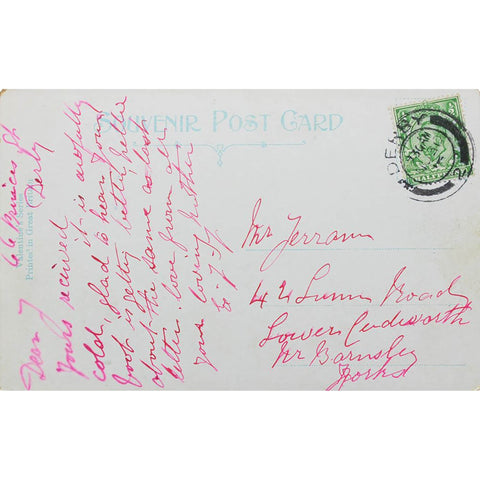 SOUVENIR POST CARD
66 Princes St
Derby
Dear J
Yours received it is awfully
cold, glad to hear your
foot is getting better, Nellie
about the same as last
letter. love from all
your loving mother
E. J.
Mr Jerram
42 Lunn Road
Lower Cudworth
Nr Barnsley
Yorks
Series
Printed in Great
DERBY